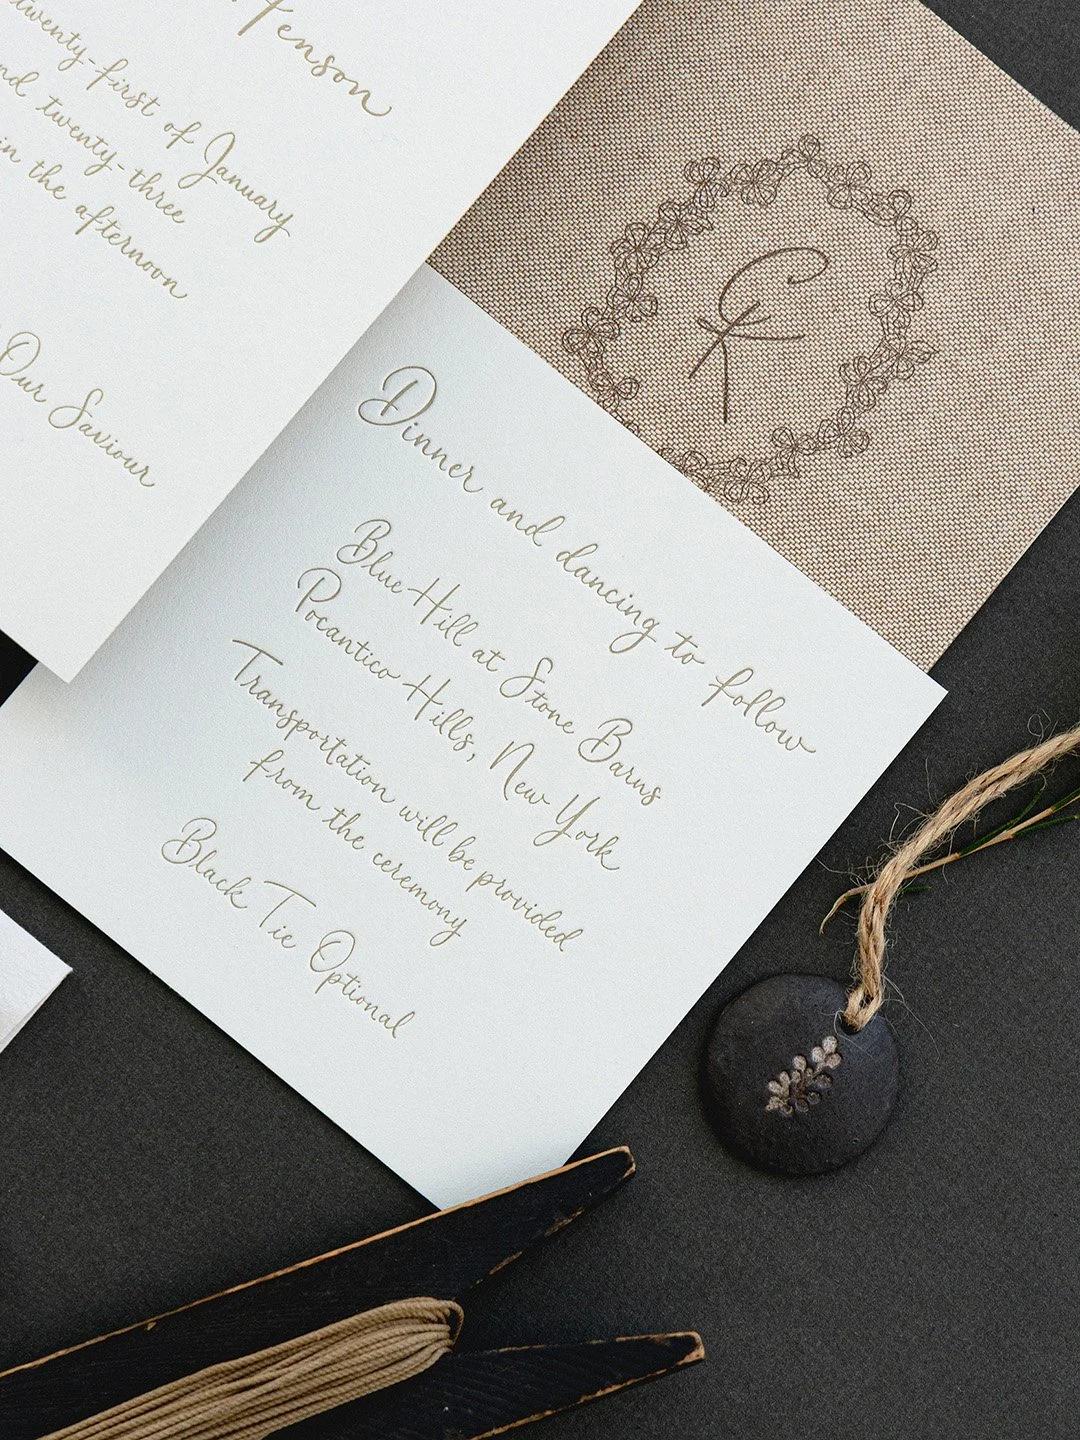 Henson
twenty-first of January
nd twenty-three
in the afternoon
Our Saviour
Dinner and dancing to follow
Blue Hill at Stone Barns
Pocantico Hills, New York
Transportation will be provided
from the ceremony
Black Tie Optional